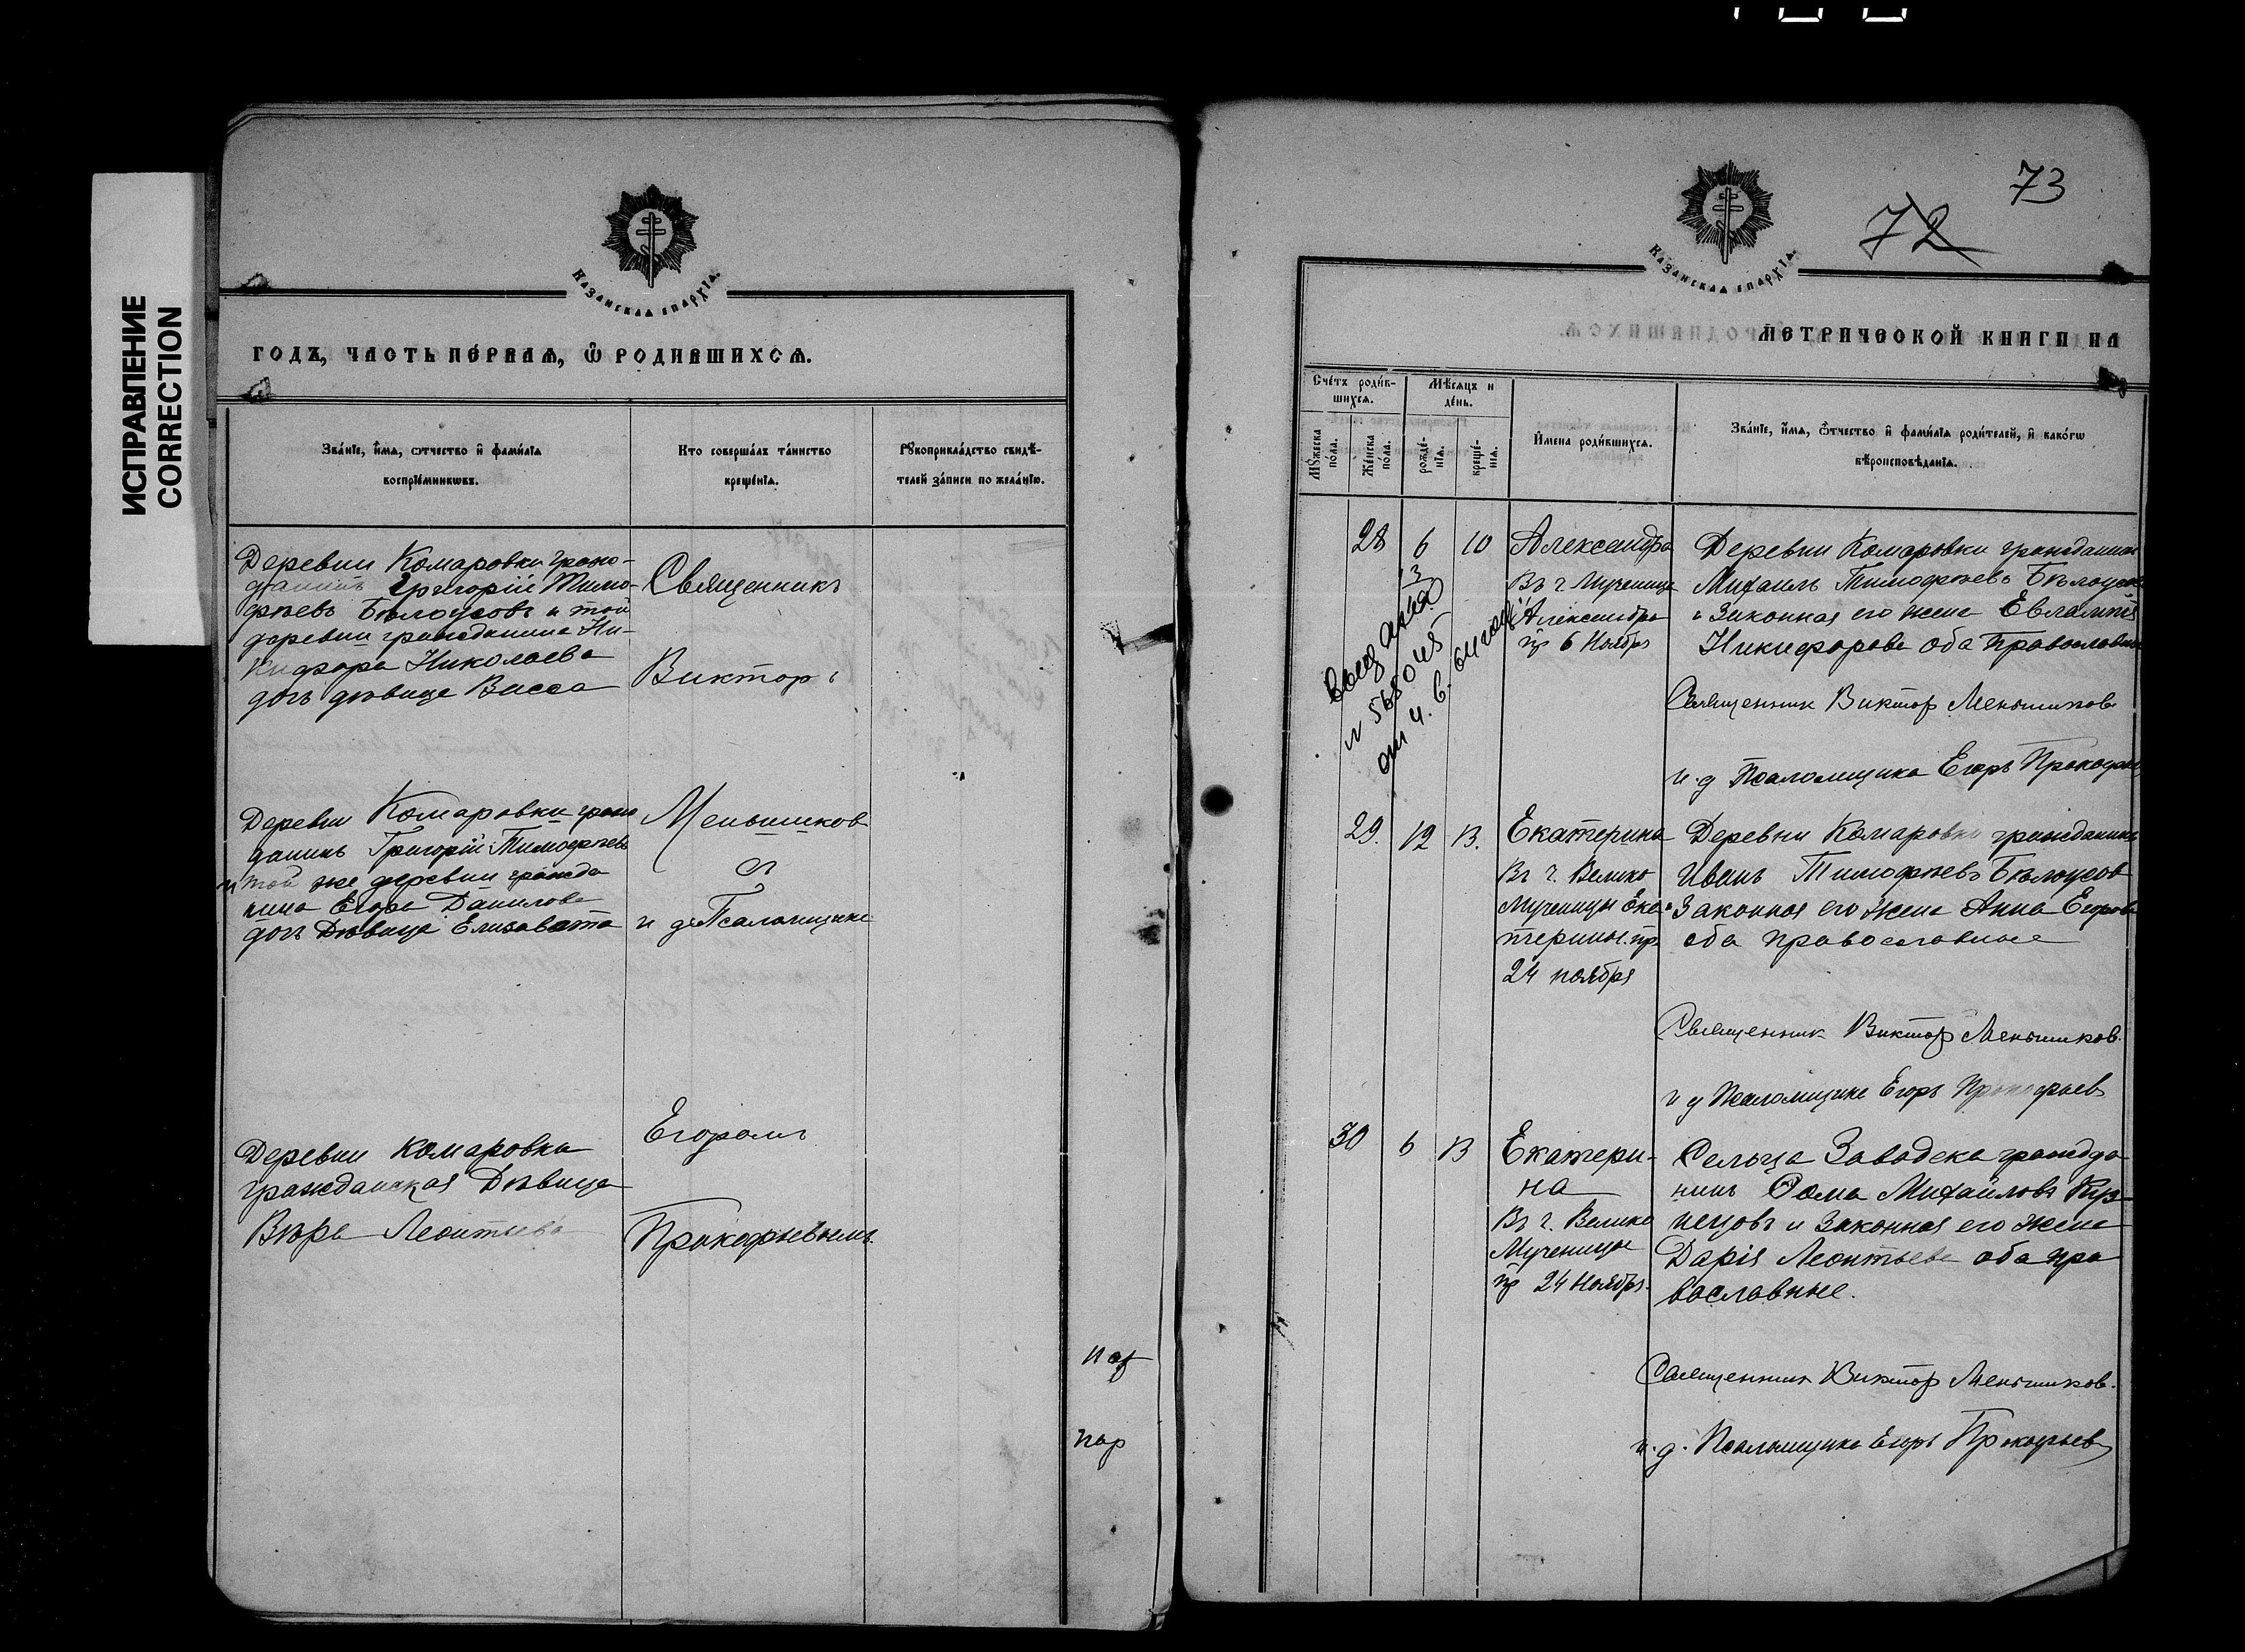 ИСПРАВЛЕНИЕ
CORRECTION
Казанская епархїа.
Годъ, часть пе́рваѧ, ѽ родившихсѧ.
Зва́нїе, и́мѧ, ѻтчество и҆ фами́лїѧ
воспрїе́мникѡвъ.
Кто соверша́лъ та́инство
креще́нїѧ.
Рꙋкоприкла́дство свидѣ-
телей за́писи по жела́нїю.
Деревни Комаровки граж-
данинъ Григорій Тимо-
феевъ Бѣлоусовъ и той
деревни гражданина Ни-
кифора Николаева
дочь дѣвица Васса
Священникъ
Викторъ
Деревни Комаровки граж
данинъ Григорій Тимофеевъ
и той же деревни гражда
нина Егора Данилова
дочь Дѣвица Елизавета
Меньшиков
съ
и д Псаломщика
Деревни Комаровки
гражданская Дѣвица
Вѣра Леонтьева
Егоромъ
Прокофьевымъ.
73
72
Казанская епархїа.
метрической книги на
Сче́тъ роди́в-
шихсѧ.
Мѣ́сѧцъ и
де́нь.
Мꙋ́жеска
по́ла.
Же́нска
по́ла.
рожде́-
нїѧ.
креще́-
нїѧ.
И҆мена роди́вшихсѧ.
Зва́нїе, и́мѧ, ѻтчество и҆ фами́лїѧ роди́телей, и҆ како́гѡ
вѣроисповѣ́данїѧ.
28 6 10 Александра
Въ ч Мученицы
Александры
пр 6 Ноября
Деревни Комаровки гражданин
Михаилъ Тимофеевъ Бѣлоусов
и Законная его жена Евлампія
Никифорова оба православные
Священник Виктор Меньшиков
и.д Псаломщика Егоръ Прокофьев
29. 12 13. Екатерина
Въ ч. Велико
Мученицы Ека-
терины пр.
24 ноября
Деревни Комаровки гражданинъ
Иванъ Тимофеевъ Бѣлоусов
и Законная его жена Анна Егорова
оба православные
Священник Виктор Меньшиков.
и д Псаломщика Егоръ Прокофьев
30 6 13 Екатери-
на
Въ ч. Велико
Мученицы
пр 24 Ноября.
Сельца Заводска гражда-
нинъ Ѳома Михайловъ Куз-
нецовъ и Законная его жена
Дарія Леонтьева оба пра
вославные.
Священник Виктор Меньшиков.
и.д. Псаломщика Егоръ Прокофьев